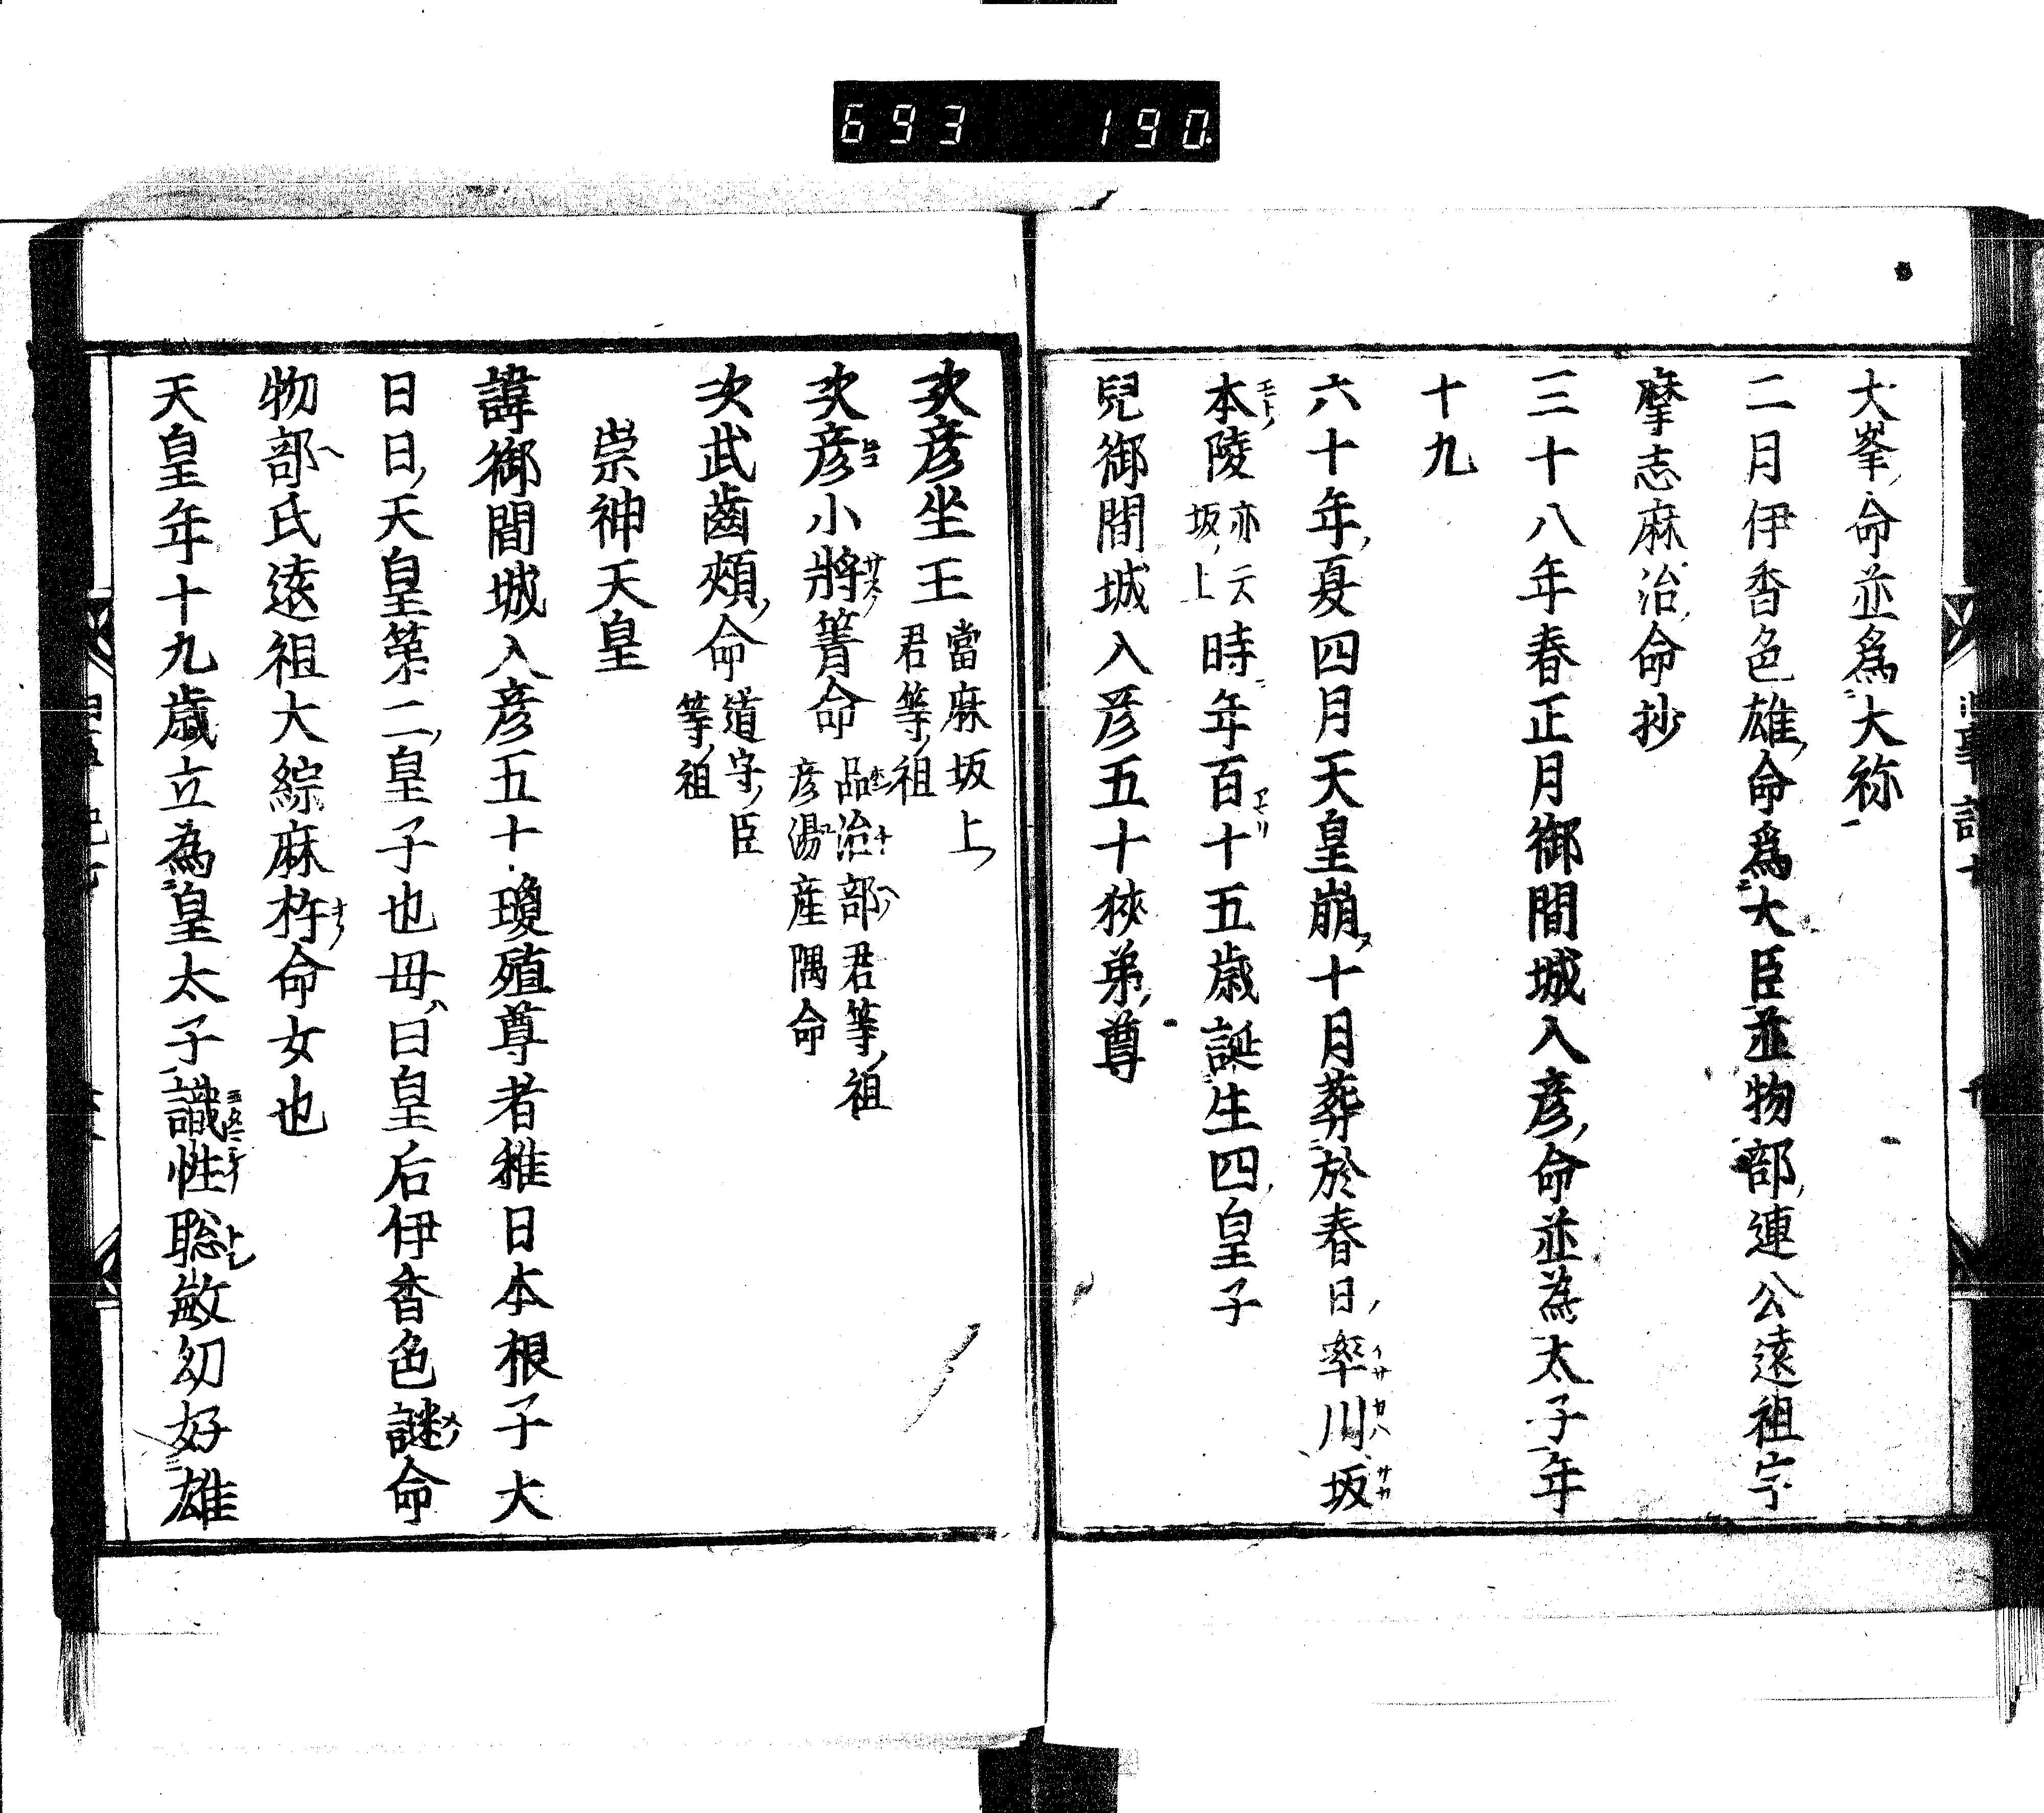 693 190
大峯命並爲大祢
二月伊香色雄命爲大臣並物部連公遠祖宇
摩志麻治命抄
三十八年春正月御間城入彦命並為太子年
十九
六十年夏四月天皇崩十月葬於春日率川坂
イサ カハ サカ
本陵
亦云
坂上
時年百十五歳誕生四皇子
兒御間城入彦五十狹弟尊
次彦坐王
當麻坂上
君等祖
次彦小將箐命
品治部君等祖
彦湯産隅命
次武齒頰命
道守臣
等祖
崇神天皇
諱御間城入彦五十瓊殖尊者稚日本根子大
日日天皇第二皇子也毌曰皇后伊香色謎命
物部氏遠祖大綜麻杵命女也
天皇年十九歳立為皇太子識性聡敏幼好雄